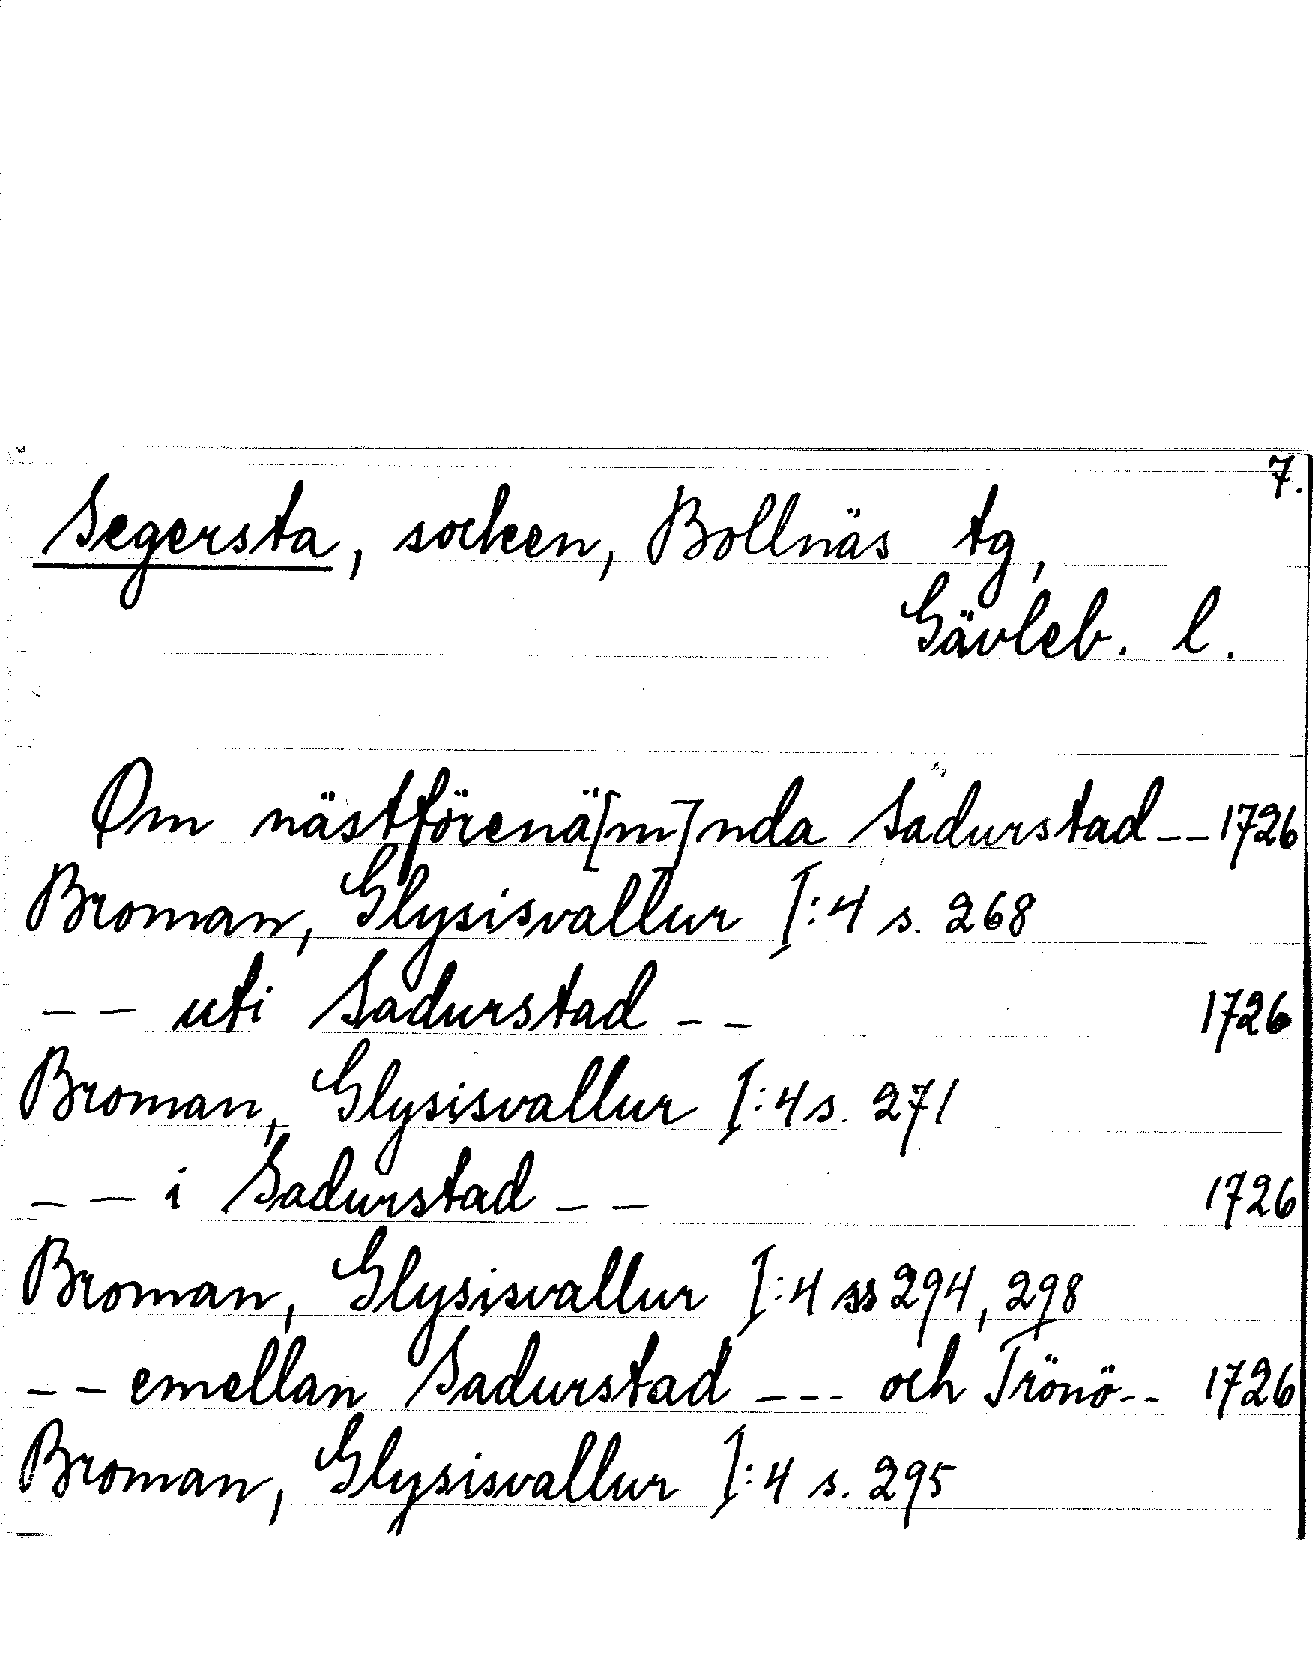 7.
Segersta, socken, Bollnäs tg,
Gävleb. l.
Om nästförenä[m]nda Sadurstad -- 1726
Broman, Glysisvallur I:4 s. 268
-- uti Sadurstad -- 1726
Broman, Glysisvallur I:4 s. 271
-- i Sadurstad -- 1726
Broman, Glysisvallur I:4 ss 294, 298
-- emellan Sadurstad --- och Trönö -- 1726
Broman, Glysisvallur I:4 s. 295